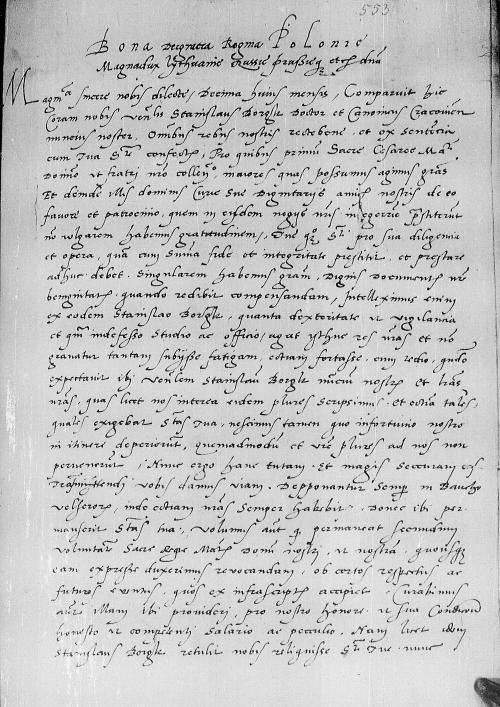 553
Bona Dei gracia Regina Polonie
Magna dux Lythuanie Russie Prussieq etc dna
Magce sincere nobis dilecte, Decima huius mensis, Comparuit hic
Coram nobis Venlis Stanislaus Borgk Doctor et Canonicus Cracovien
nuncius noster, Omibus rebus nostris recte bene, et ex sententia
cum Tua confectis, Pro quibus primu Sacre Cesaree Mati
Domino et fratri nro maiores quas possumus agimus gras
Et deinde illis dominis Curie Sue Dignitarijs amicis nostris de eo
favore et patrocinio, quem in eisdem negocijs nris
no vulgarem habemus gratitudinem, Tue pro sua diligencia
et opera, qua cum Summa fide et integritate prestitit, et prestare
adhuc debet, Singularem habemus gram, Dignis Documentis nre
benignitatis, quando redibit compensandam, Intelleximus enim
ex eodem Stanislao Borgk, quanta dexteritate et vigilancia
et indefesso studio ac officio, agat isthuc res nras et no
gravatur tantam subijsse fatigam, etiam fortasse cum tedio, quado
expectavit ibi Venlem Stanislau Borgk nuciu nostru et lras
nras, quas licet nos interea eidem plures scripsimus, Et etia tales,
quales exigebat Stas Tua, nescimus tamen quo infortunio nostro
in itinere deperierut, quemadmodu et vre plures ad nos non
pervenerut, Nunc ergo hanc tutam, Et magis securam eis
transmittendi vobis damus viam, Depponantur Semper in Bancho
velserorum, inde etiam nras semper habebit, Donec ibi per-
manserit Stas tua, Volumus aut permaneat secundum
voluntate Sacre Rege Matis Domini nostri, et nostra, quousque
eam expresse duxerimus revocandam, ob certos respectus ac
futuros eventus, quos ex infrascriptis accipiet, Curabimus
aute illam ibi provideri, pro nostro honore et sua Condicione
honesto et competenti salario ac peculio, Nam licet idem
Stanislaus Borgk retulit nobis reliquisse Tue nunc